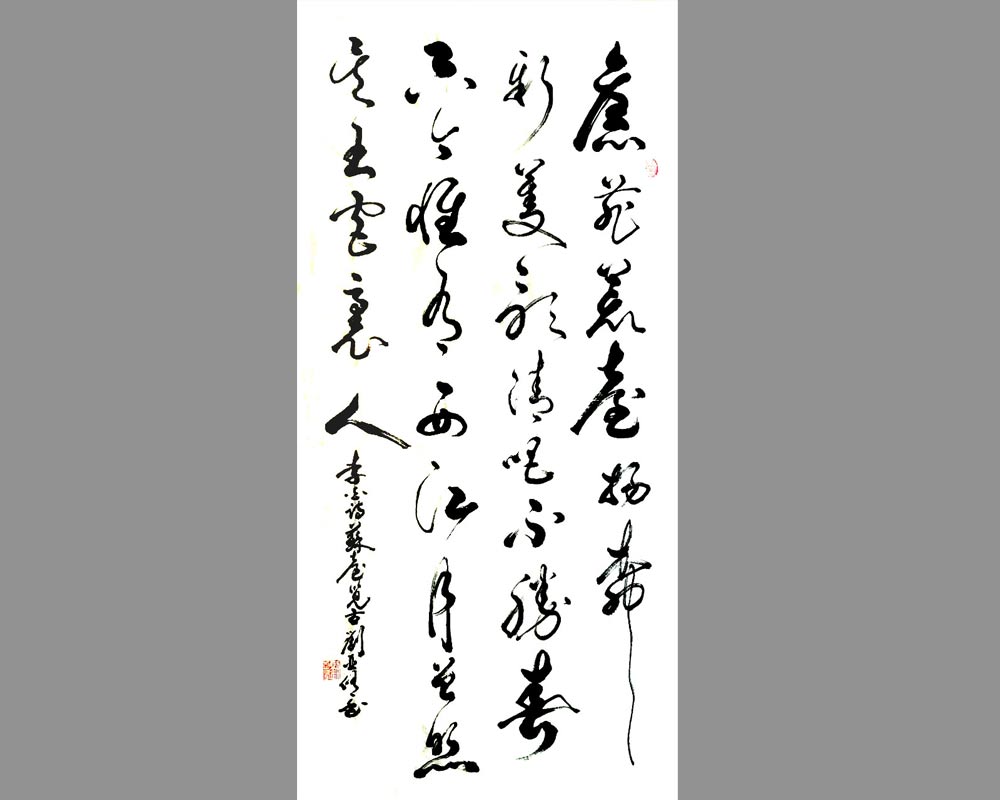 舊苑荒臺楊柳
新菱歌清唱不勝春
只今惟有西江月曾照
吳王宮裏人
李白詩蘇臺覽古劉亞